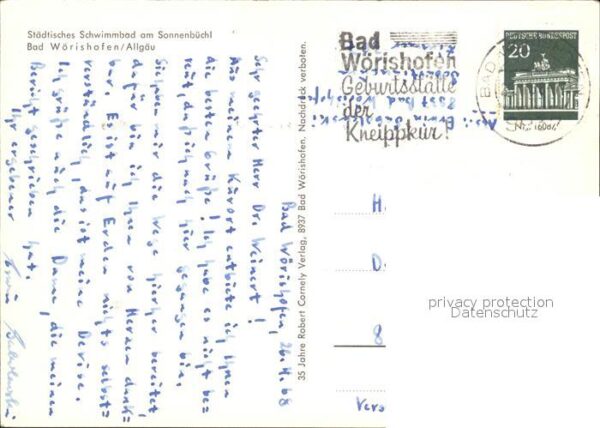 Städtisches Schwimmbad am Sonnenbüchl
Bad Wörishofen/Allgäu
Bad Wörishofen, 26.4.68
Sehr geehrter Herr Dr. Weinert!
Aus meinem Kurort entbiete ich Ihnen
die besten Grüße! Ich habe es nicht be=
reut, daß ich nach hier gegangen bin.
Sie haben mir die Wege hierher bereitet
dafür bin ich Ihnen von Herzen dank=
bar. Es ist auf Erden nichts selbst=
verständlich, das ist meine Devise.
Ich grüße auch die Dame, die meinen
Bericht geschrieben hat.
Ihr ergebener
Erwin
35 Jahre Robert Cornely Verlag, 8937 Bad Wörishofen. Nachdruck verboten.
Bad
Wörishofen
Geburtsstätte
der
Kneippkur!
DEUTSCHE BUNDESPOST
20
BAD
H
D
8
Vers
privacy protection
Datenschutz